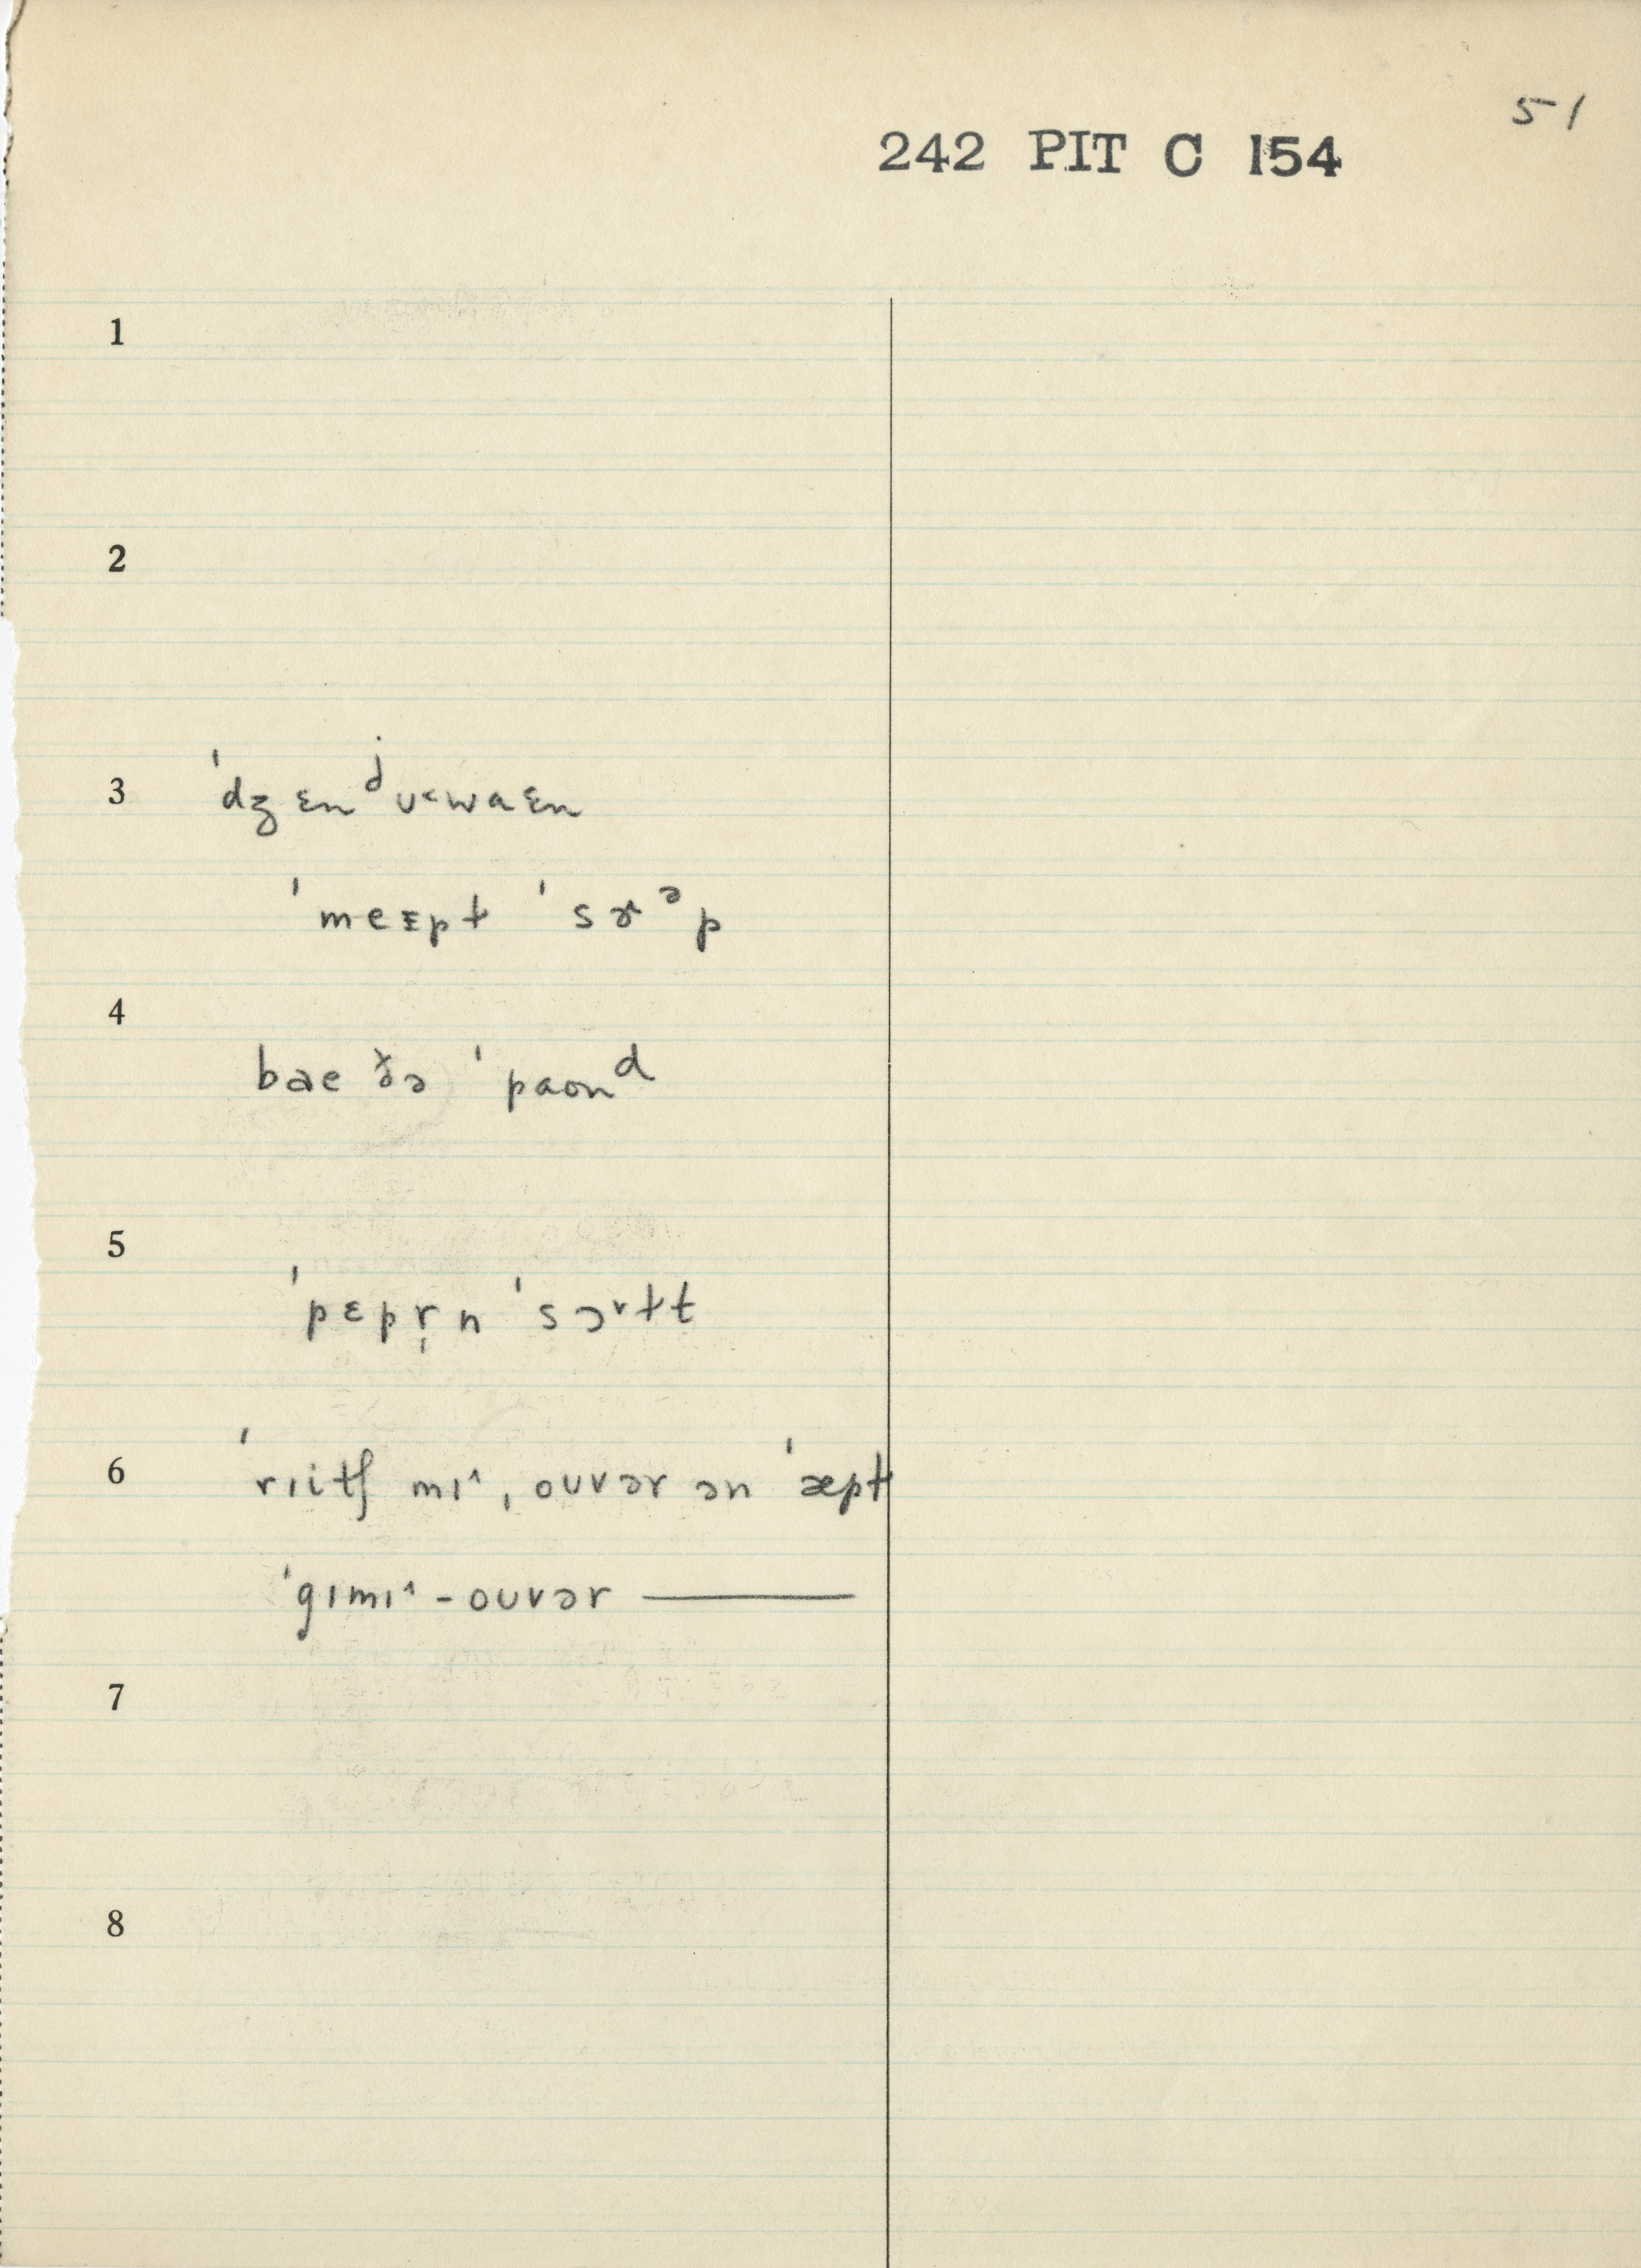 51
242 PIT C 154
1
2
3 ˈdʒɛnʲᴜ˂waɛn
ˈmeɛpɫ ˈsɤᵊp
4 bae ðə ˈpaonᵈ
5 ˈpɛpr̩n ˈsɔ˅ɫt
6 ˈrɪitʃ mɪ˄, oᴜvər ən ˈæpɫ
ˈgɪmɪ˄ - oᴜvər ———
7
8